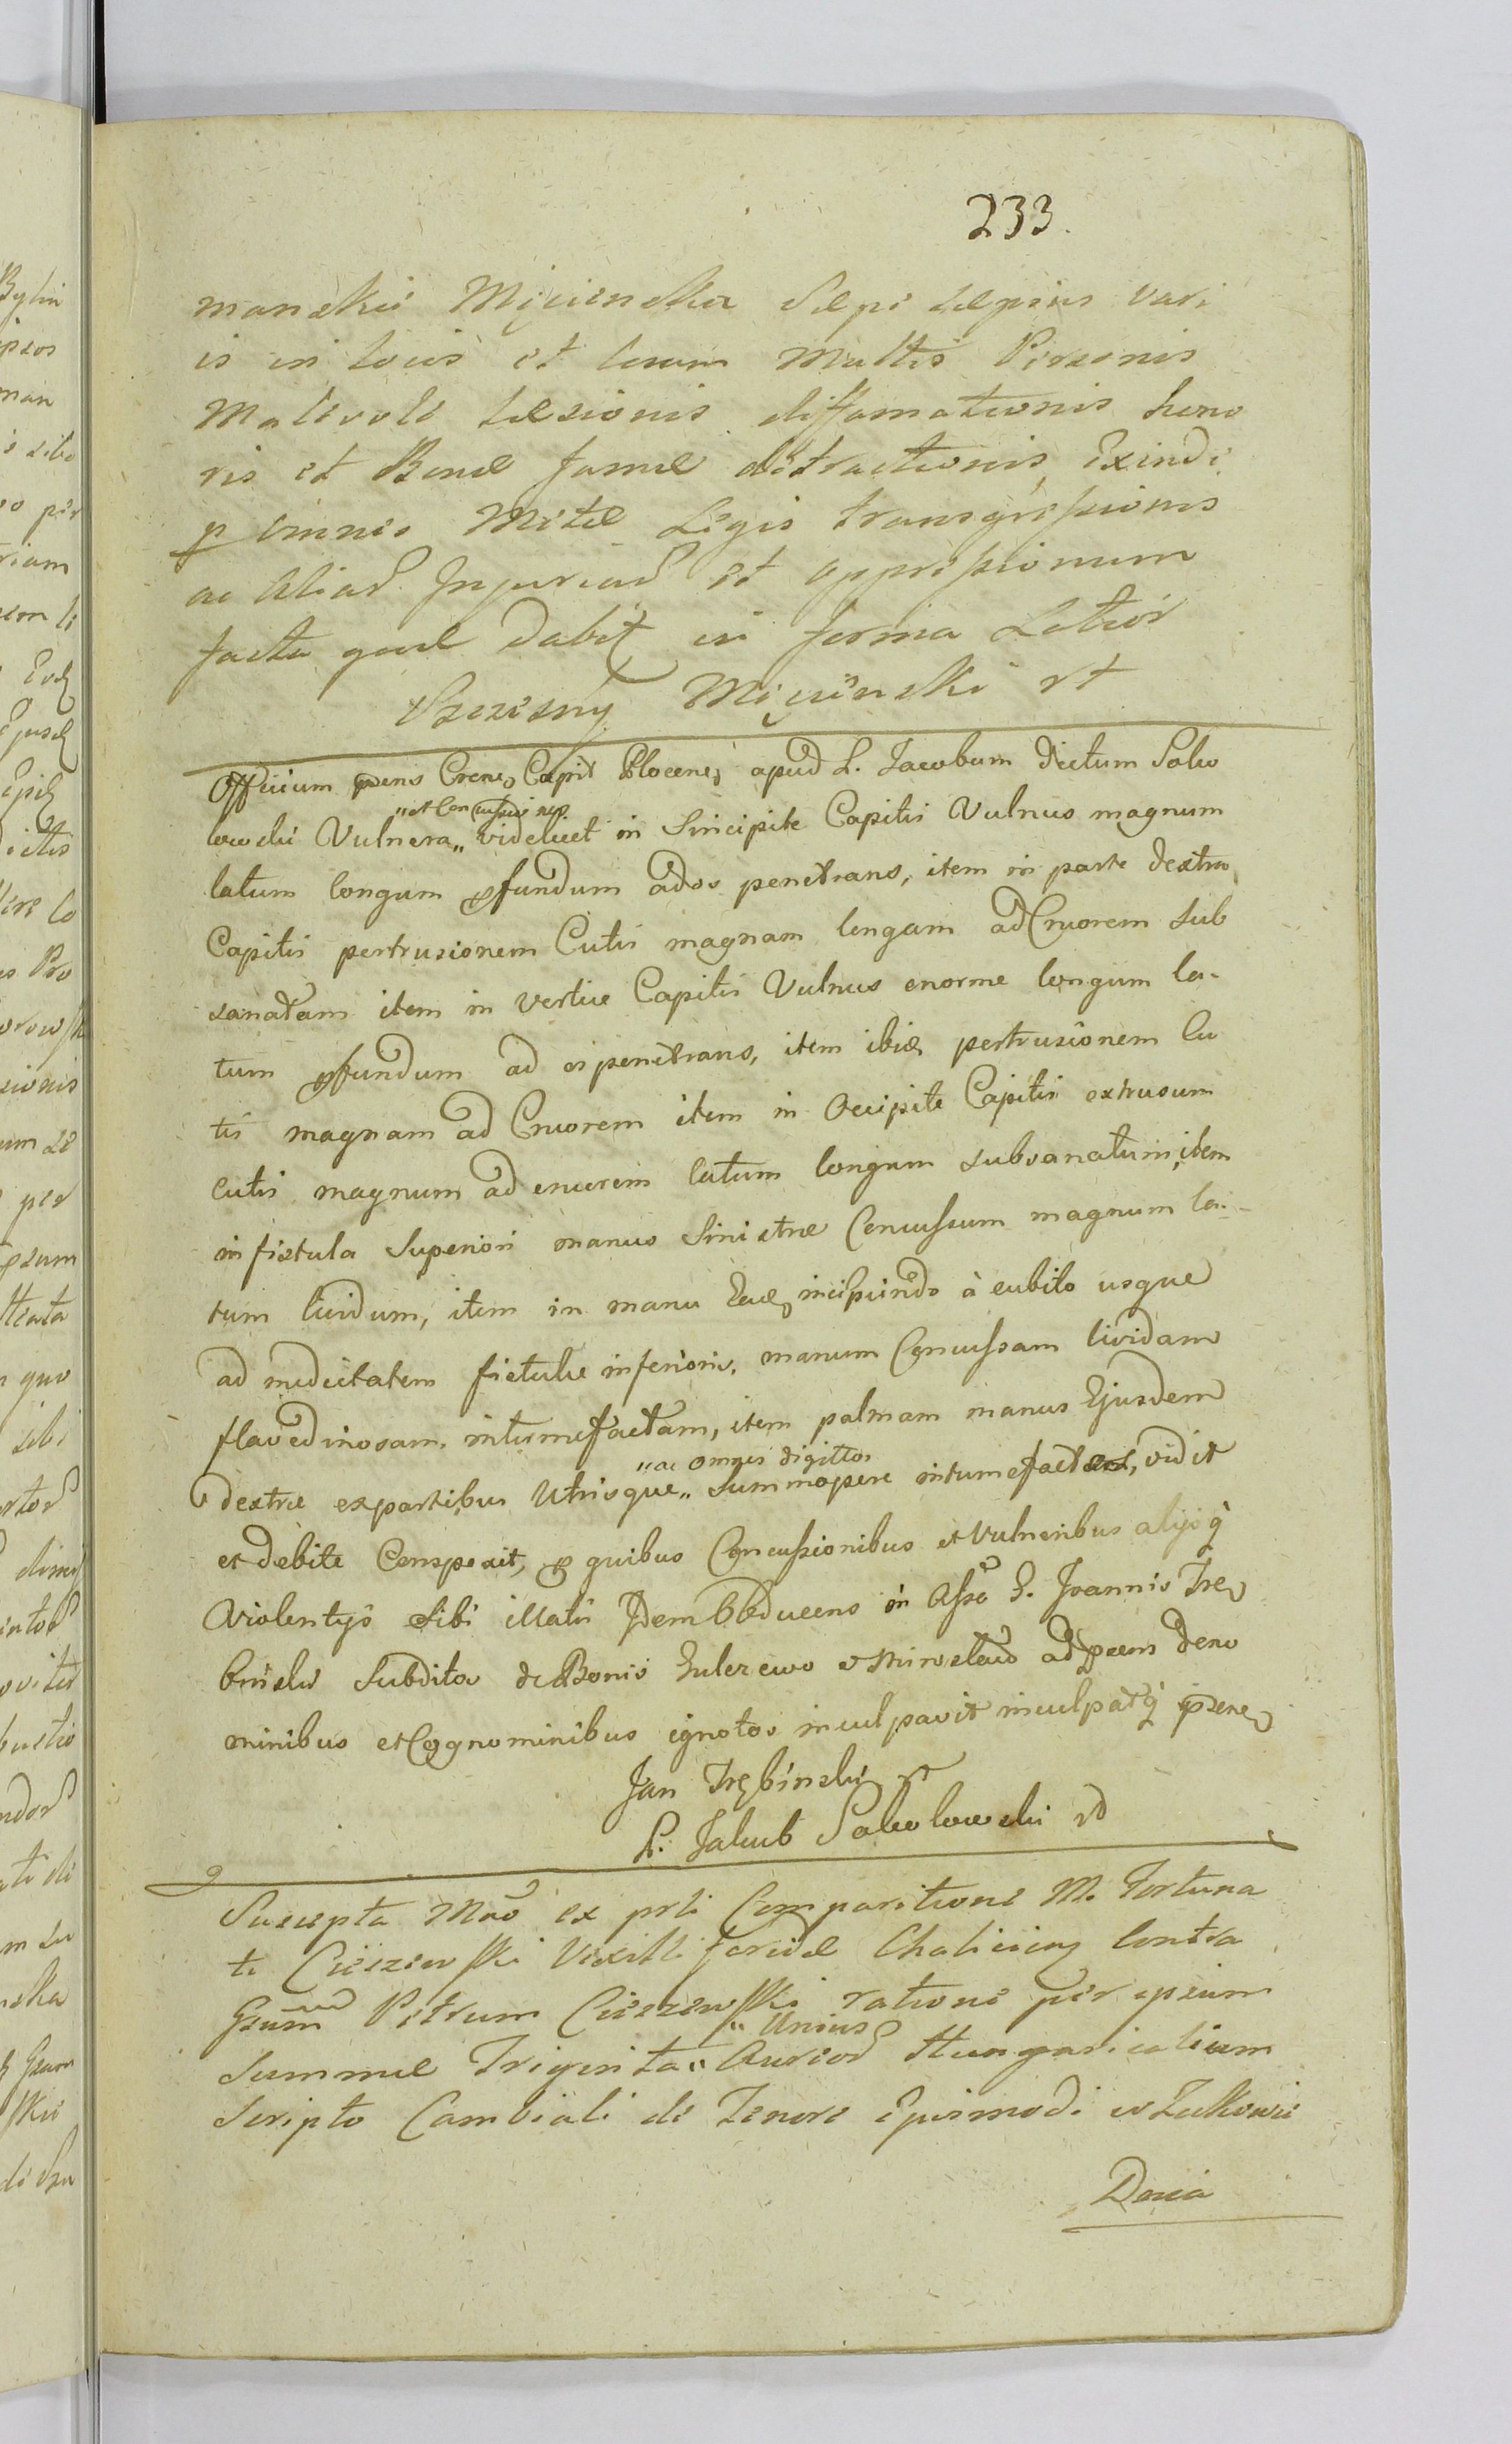 233.
manskie Mięcienska Sæpe sæpius vari
is in locis et coram Multis Personis
Malevole Læsionis diffamationis hono
ris et Bonæ famæ detractionis, Exinde
p omnes Metæ Legis transgressionis
ac Aliar Injuriar et oppressionum
facta quæ dabit in forma Latior
Szczesny Mięcienski
Officium præns Crense Capit Plocense apud L. Jacobum dictum Soko
lowski Vulnera „et Concussiones„ videlicet in Sincipite Capitis Vulnus magnum
latum longum pfundum ad os penetrans, item in parte dextra
Capitis pertrusionem Cutis magnam longam ad Cruorem sub
sanatam item in vertice Capitis Vulnus enorme longum la-
tum pfundum ad os penetrans, item ibid pertrusionem Cu
tis magnam ad Cruorem item in Occipite Capitis extrusum
cutis magnum ad cruorem latum longum subsanatum, item
in fistula Superiori manus Sinistræ Concussum magnum la-
tum lividum, item in manu Ead incipiendo à cubito usque
ad medietatem fistulæ inferioris, manum Concussam lividam
flavedinosam intumefactam, item palmam manus Ejusdem
dextræ ex partibus Utrisque „ac omnes digittos„ Summopere intumefactas, vidit
et debite Conspexit, p quibus Concussionibus et Vulneribus alijsq
Violentijs Sibi illatis Idem Obducens in Assã G. Joannis Tre
binski Subditos de Bonis Gulczewo et Mirosław ad præns deno
minibus et Cognominibus ignotos inculpavit inculpatq præns
Jan Trębinski
L. Jakub Sokolowski
Suscepta Mão ex prli Comparitione M. Fortuna
ti Cieszewski Vexilliferidæ Halicien Contra
Gsum Petrum Cieszewski ratione per ipsum
Summæ Triginta „Unius„ Aureor Hungaricalium
Scripto Cambiali de Tenore Ejusmodi w Zulkowie
Dnia